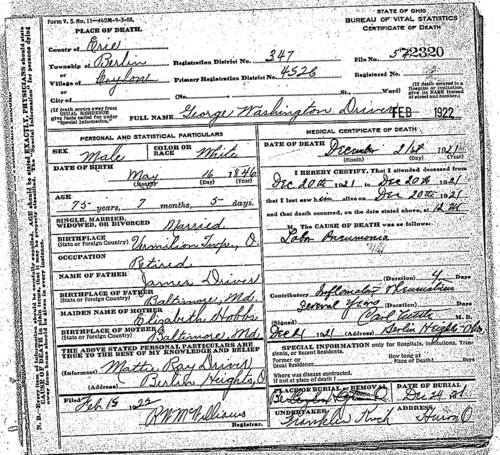 Form V. S. No. 11-462M-9-3-08.
STATE OF OHIO
BUREAU OF VITAL STATISTICS
CERTIFICATE OF DEATH
PLACE OF DEATH.
County of Erie
Township of Berlin
or
Village of Ceylone
or
City of
Registration District No. 347
Primary Registration District No. 4526
File No. 572320
Registered No. 2
(No. St., Ward)
(If death occurred in a Hospital or institution, give its NAME instead of street and number.)
(If death occurs away from USUAL RESIDENCE give facts called for under "Special Information.")
FULL NAME George Washington Driver
FEB 1922
PERSONAL AND STATISTICAL PARTICULARS
SEX
Male
COLOR OR RACE
White
DATE OF BIRTH
May 16 1846
(Month) (Day) (Year)
AGE
75 years, 7 months, 5 days.
SINGLE, MARRIED, WIDOWED, OR DIVORCED Married
BIRTHPLACE
(State or Foreign Country) Vermilion Twp., O.
OCCUPATION
Retired
NAME OF FATHER James Driver
BIRTHPLACE OF FATHER
(State or Foreign Country) Baltimore, Md.
MAIDEN NAME OF MOTHER Elizabeth Hobbs
BIRTHPLACE OF MOTHER
(State or Foreign Country) Baltimore, Md.
THE ABOVE STATED PERSONAL PARTICULARS ARE TRUE TO THE BEST OF MY KNOWLEDGE AND BELIEF
(Informant) Ray Driver
(Address) Berlin Heights, O
Filed Feb 15 1922
R W McWilliams
Registrar.
MEDICAL CERTIFICATE OF DEATH
DATE OF DEATH
December 21st 1921
(Month) (Day) (Year)
I HEREBY CERTIFY, That I attended deceased from
Dec 20th 1921 to Dec 20th 1921
that I last saw him alive on Dec 20th 1921
and that death occurred, on the date stated above, at 12 M.
The CAUSE OF DEATH was as follows:
Lobar Pneumonia
(Duration) 4 Days
Contributory Inflamatory Rheumatism
Several Years (Duration) Days
(Signed) Carl Tuttle M. D.
Dec 21 1921 (Address) Berlin Heights Ohio
SPECIAL INFORMATION only for Hospitals, Institutions, Transients, or Recent Residents.
Former or Usual Residence
How long at Place of Death? Days
Where was disease contracted, If not at place of death?
PLACE OF BURIAL or REMOVAL
DATE OF BURIAL
Dec 24 1921
UNDERTAKER
Franklin
ADDRESS
Huron O.